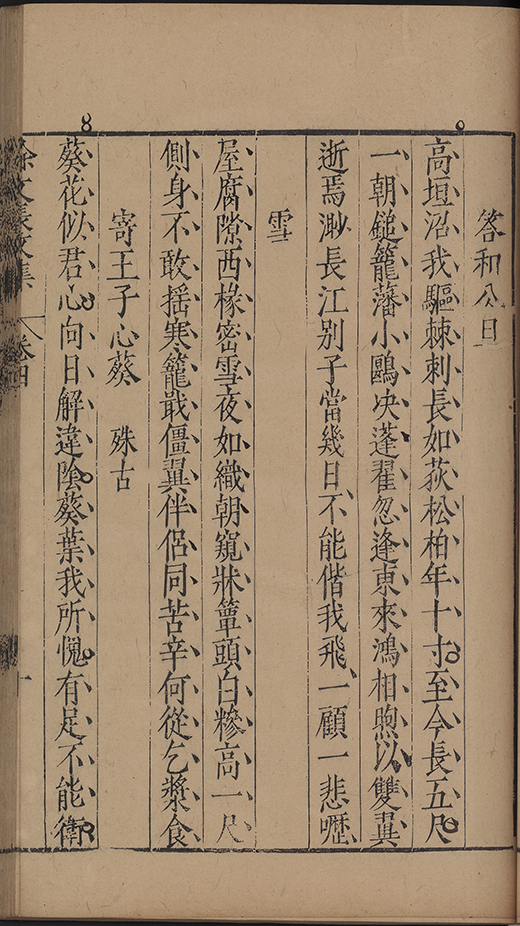 答和公旦
高垣沼我驅棘刺長如荻松柏年十寸至今長五尺
一朝鎚籠藩小鷗决蓬翟忽逢東來鴻相煦以雙翼
逝焉渺長江别子當幾日不能偕我飛一顧一悲嚦
雪
屋腐隙西椽密雪夜如織朝窺牀簟頭白糝高一尺
側身不敢揺寒籠戢僵翼伴侣同苦辛何從乞漿食
寄王子心葵 殊古
葵花似君心向日解違陰葵葉我所愧有足不能衛
徐文長文集 卷四